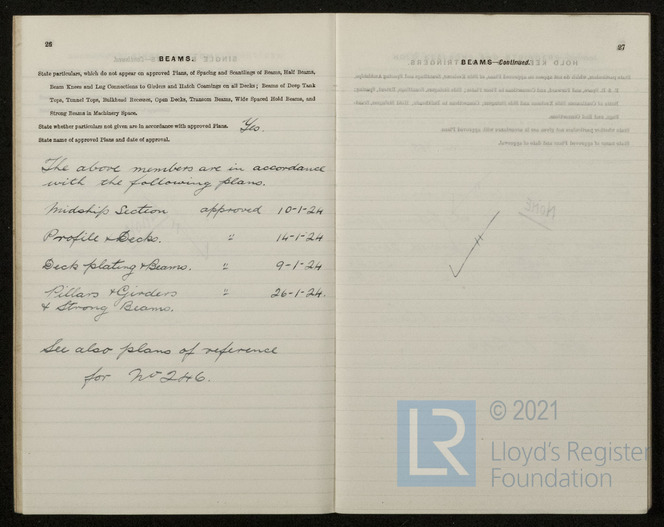 26
BEAMS.
State particulars, which do not appear on approved Plans, of Spacing and Scantlings of Beams, Half Beams,
Beam Knees and Lug Connections to Girders and Hatch Coamings on all Decks; Beams of Deep Tank
Tops, Tunnel Tops, Bulkhead Recesses, Open Decks, Transom Beams, Wide Spaced Hold Beams, and
Strong Beams in Machinery Space.
State whether particulars not given are in accordance with approved Plans. Yes.
State name of approved Plans and date of approval.
The above members are in accordance
with the following plans.
Midship Section approved 10-1-24
Profile & Decks. " 14-1-24
Deck plating & Beams. " 9-1-24
Pillars & Girders " 26-1-24.
& Strong Beams.
See also plans of reference
for No 246.
27
BEAMS—Continued.
LR
© 2021
Lloyd's Register
Foundation